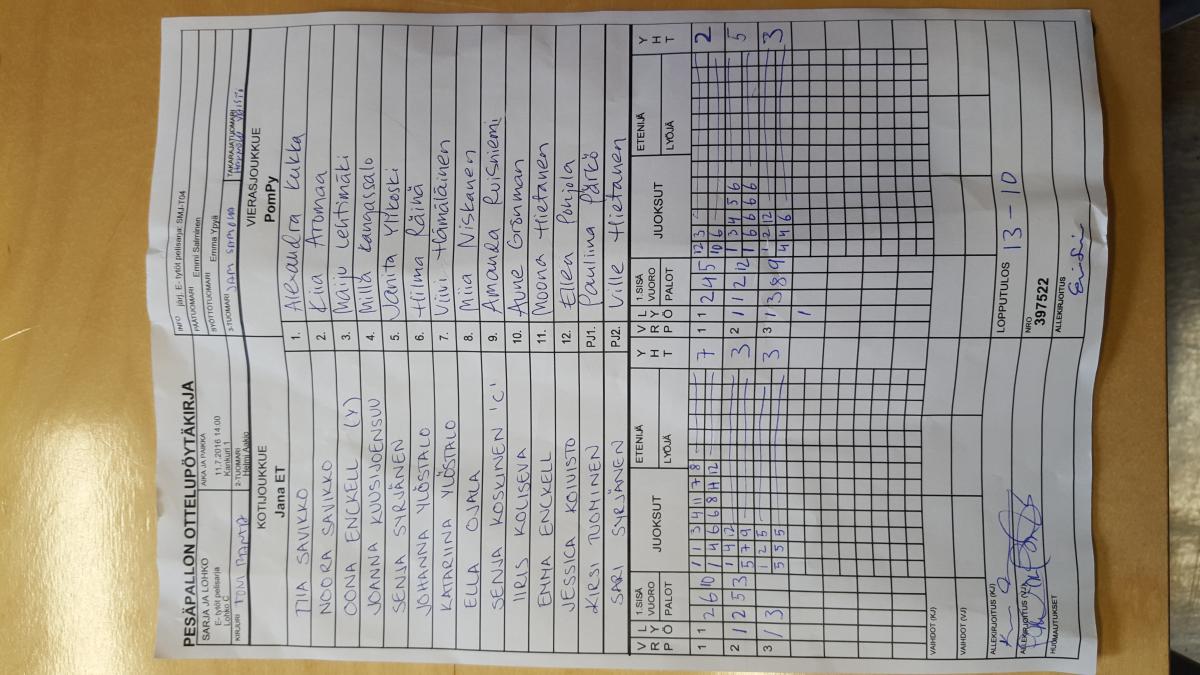 PESÄPALLON OTTELUPÖYTÄKIRJA
SARJA JA LOHKO
E- tytöt pelisarja
Lohko C
AIKA JA PAIKKA
11.7.2016 14.00
Kankuri 1
INFO järj. E- tytöt pelisarja: SMJ-T04
PÄÄTUOMARI Emmi Salminen
SYÖTTÖTUOMARI Emma Ypyä
KIRJURI TONI
2-TUOMARI
Helmi Aakko
3-TUOMARI
TAKARAJATUOMARI
KOTIJOUKKUE
Jana ET
VIERASJOUKKUE
PomPy
TIIA SAVIKKO 1. Alexandra Kukka
NOORA SAVIKKO 2. Kiia Aromaa
OONA ENCKELL (Y) 3. Maiju Lehtimäki
JOANNA KUUSIJOENSUU 4. Milla Kangassalo
SENJA SYRJÄNEN 5. Vanita Ylikoski
JOHANNA YLÖSTALO 6. Hilma Räinä
KATARIINA YLÖSTALO 7. Viivi Hämäläinen
ELLA OJALA 8. Miia Niskanen
SENJA KOSKINEN 'C' 9. Amanda Ruisniemi
IIRIS KOLISEVA 10. Aune Grönman
EMMA ENCKELL 11. Moona Hietanen
JESSICA KOIVISTO 12. Ellea Pohjola
KIRSI TUOMINEN PJ1. Pauliina Pärkö
SARI SYRJÄNEN PJ2. Ville Hietanen
V R P L Y Ö 1.SISÄ VUORO PALOT JUOKSUT ETENIJÄ LYÖJÄ Y H T V R P L Y Ö 1.SISÄ VUORO PALOT JUOKSUT ETENIJÄ LYÖJÄ Y H T
1 1 2 6 10 1 1 3 4 11 7 8 7 1 1 2 4 5 12 3 2
1 4 6 6 8 11 12 10 6
2 1 2 5 3 1 4 12 3 2 1 1 2 12 1 3 4 5 6 5
5 7 9 1 6 6 6 6
3 1 3 1 2 5 3 3 1 3 8 9 1 2 12 3
5 5 5 4 4 6
1
VAIHDOT (KJ)
VAIHDOT (VJ)
ALLEKIRJOITUS (KJ)
LOPPUTULOS 13 - 10
ALLEKIRJOITUS (VJ)
NRO
397522
HUOMAUTUKSET
ALLEKIRJOITUS